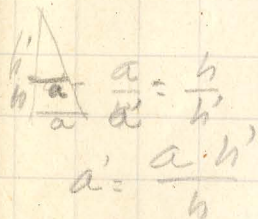 h'
h a'
a
a/a' = h/h'
a' = a h'/h